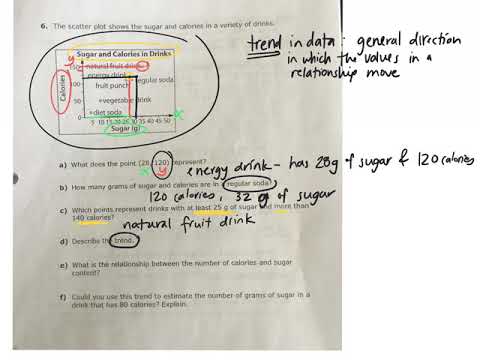 6. The scatter plot shows the sugar and calories in a variety of drinks.
Sugar and Calories in Drinks
y
150
natural fruit drink
energy drink
regular soda
100
fruit punch
Calories
50
vegetable drink
diet soda
x
0
5 10 15 20 25 30 35 40 45 50
Sugar (g)
trend in data : general direction
in which the values in a
relationship move
a) What does the point (28, 120) represent?
x y
energy drink - has 28g of sugar & 120 calories
b) How many grams of sugar and calories are in regular soda?
120 calories, 32 g of sugar
c) Which points represent drinks with at least 25 g of sugar and more than
140 calories?
natural fruit drink
d) Describe the trend.
e) What is the relationship between the number of calories and sugar
content?
f) Could you use this trend to estimate the number of grams of sugar in a
drink that has 80 calories? Explain.